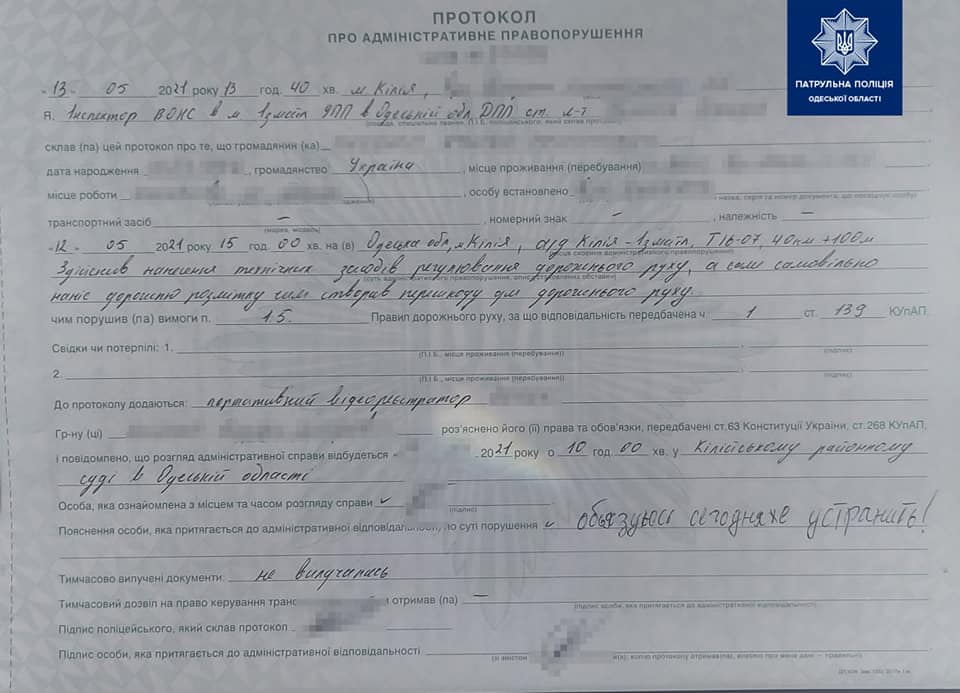 ПРОТОКОЛ
ПРО АДМІНІСТРАТИВНЕ ПРАВОПОРУШЕННЯ
ПАТРУЛЬНА ПОЛІЦІЯ
ОДЕСЬКОЇ ОБЛАСТІ
"13" 05 2021 року 13 год. 40 хв. м. Кілія,
Я, Інспектор ВОКС в м. Ізмаїл УПП в Одеській обл. ДПП ст. л-т
склав (па) цей протокол про те, що громадянин (ка)
дата народження , громадянство Україна , місце проживання (перебування)
місце роботи , особу встановлено
транспортний засіб – , номерний знак – , належність –
(марка, модель)
"12" 05 2021 року 15 год. 00 хв. на (в) Одеська обл, м. Кілія, а/д Кілія-Ізмаїл, Т16-07, 40км +100м
Здійснив нанесення технічних засобів регулювання дорожнього руху, а саме самовільно
наніс дорожню розмітку чим створив перешкоду для дорожнього руху.
чим порушив (па) вимоги п. 1.5. Правил дорожнього руху, за що відповідальність передбачена ч. 1 ст. 139 КУпАП.
Свідки чи потерпілі: 1.
(П.І.Б., місце проживання (перебування)) (підпис)
2.
(П.І.Б., місце проживання (перебування)) (підпис)
До протоколу додаються: портативний відеореєстратор
Гр-ну (ці) роз'яснено його (її) права та обов'язки, передбачені ст.63 Конституції України, ст.268 КУпАП,
і повідомлено, що розгляд адміністративної справи відбудеться « 2021 року о 10 год. 00 хв. у Кілійському районному
суді в Одеській області
Особа, яка ознайомлена з місцем та часом розгляду справи
(підпис)
Пояснення особи, яка притягається до адміністративної відповідальності, по суті порушення обязуюсь сегодня же устранить!
Тимчасово вилучені документи: не вилучались
Тимчасовий дозвіл на право керування транс отримав (па) –
(підпис особи, яка притягається до адміністративної відповідальності)
Підпис поліцейського, який склав протокол
Підпис особи, яка притягається до адміністративної відповідальності